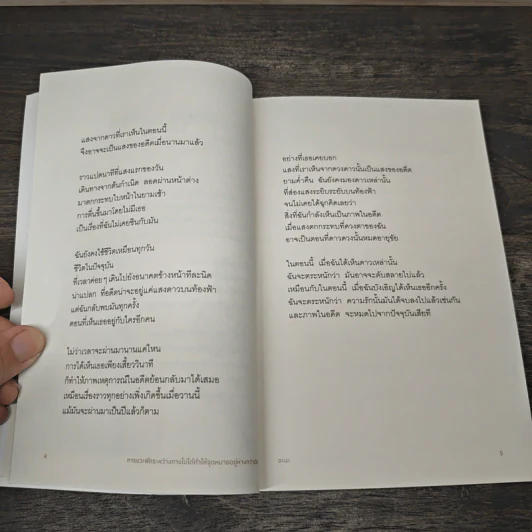 แสงจากดาวที่เราเห็นในตอนนี้
จึงอาจจะเป็นแสงของอดีตเมื่อนานมาแล้ว
ราวแปดนาทีที่แสงแรกของวัน
เดินทางจากต้นกำเนิด ลอดผ่านหน้าต่าง
มาตกกระทบใบหน้าในยามเช้า
การตื่นขึ้นมาโดยไม่มีเธอ
เป็นเรื่องที่ฉันไม่เคยชินกับมัน
ฉันยังคงใช้ชีวิตเหมือนทุกวัน
ชีวิตในปัจจุบัน
ที่เวลาค่อยๆ เดินไปยังอนาคตข้างหน้าทีละนิด
น่าแปลก ที่อดีตน่าจะอยู่แค่แสงดาวบนท้องฟ้า
แต่ฉันกลับพบมันทุกครั้ง
ตอนที่เห็นเธออยู่กับใครอีกคน
ไม่ว่าเวลาจะผ่านมานานแค่ไหน
การได้เห็นเธอเพียงเสี้ยววินาที
ก็ทำให้ภาพเหตุการณ์ในอดีตย้อนกลับมาได้เสมอ
เหมือนเรื่องราวทุกอย่างเพิ่งเกิดขึ้นเมื่อวานนี้
แม้มันจะผ่านมาเป็นปีแล้วก็ตาม
4
การแวะพักระหว่างทางไม่ได้ทำให้จุดหมายอยู่ห่างกว่าเดิม
อย่างที่เธอเคยบอก
แสงที่เราเห็นจากดวงดาวนั้นเป็นแสงของอดีต
ยามค่ำคืน ฉันยังคงมองดาวเหล่านั้น
ที่ส่องแสงระยิบระยับบนท้องฟ้า
จนไม่เคยได้ฉุกคิดเลยว่า
สิ่งที่ฉันกำลังเห็นเป็นภาพในอดีต
เมื่อแสงตกกระทบที่ดวงตาของฉัน
อาจเป็นตอนที่ดาวดวงนั้นหมดอายุขัย
ในตอนนี้ เมื่อฉันได้เห็นดาวเหล่านั้น
ฉันจะตระหนักว่า มันอาจจะดับสลายไปแล้ว
เหมือนกับในตอนนี้ เมื่อฉันบังเอิญได้เห็นเธออีกครั้ง
ฉันจะตระหนักว่า ความรักนั้นมันได้จบลงไปแล้วเช่นกัน
และภาพในอดีต จะหมดไปจากปัจจุบันเสียที
5